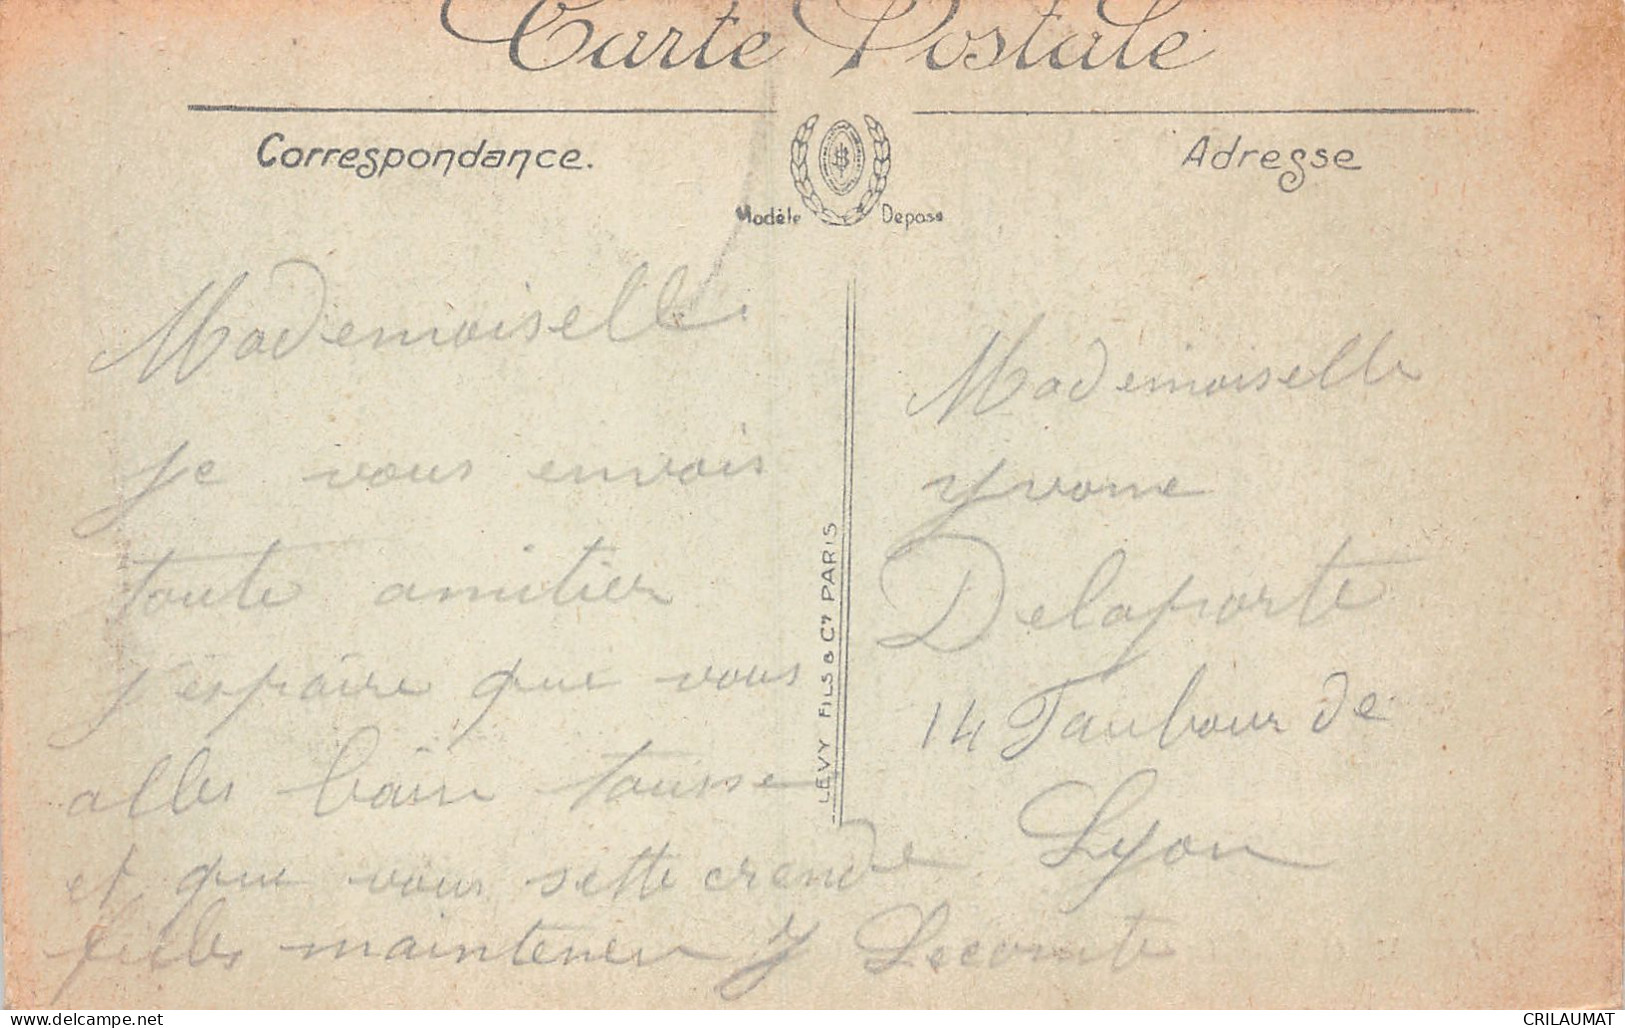 Carte Postale
Correspondance.
Adresse
Modèle Deposé
Mademoiselle
je vous envois
toute amitier
j'espaire que vous
alles bain tousse
et que vous sette crende
fielles maintenen J Lecomte
LEVY FILS & Cie PARIS
Mademoiselle
Yvonne
Delaporte
14 Faubour de
Lyon
CRILAUMAT